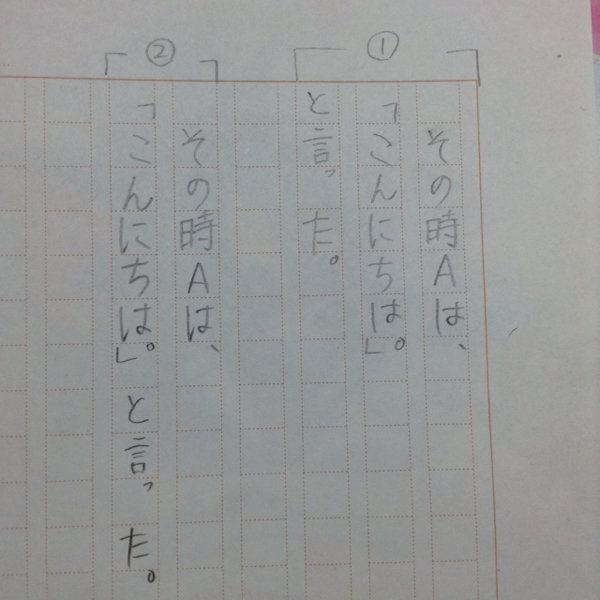 ①
その時Aは、
「こんにちは。」
と言った。
②
その時Aは、
「こんにちは。」と言った。